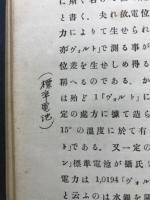 と書く。夫れ故,電位
力によりて生せられ
亦ヴォルト」で測る事が
位差を生ぜしめ得る
稱へるのである。か
は殆ど1「ヴォルト」に
の處方に據て造ら
15°の溫度に於て有
ト」である。又一定の
ン,標準電池が攝氏
電力は,1.0194「ヴォル
と云ふのは水銀を陽
(標準電池)